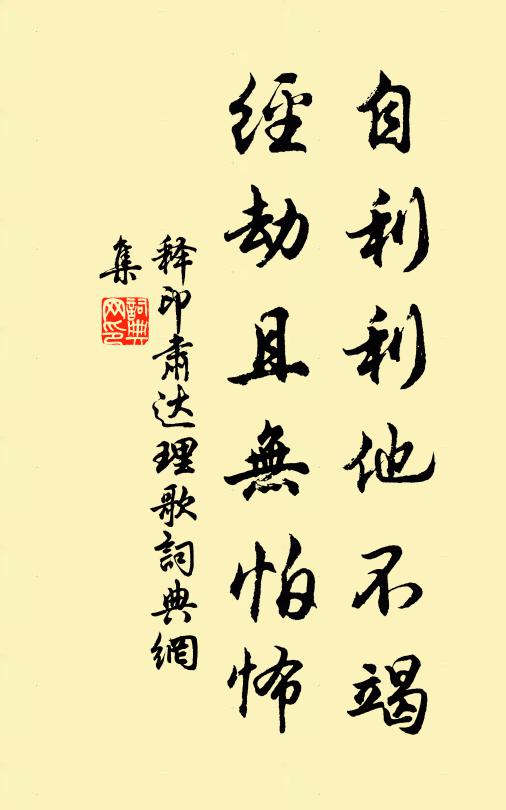 自利利他不竭
經劫且無怕怖
释印肃达理歌詞典網
集
詞典
网印